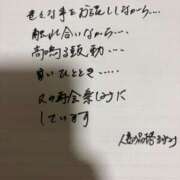 色んな事をお話ししながら....
触れ合いながら....
高鳴る鼓動....
甘いひととき.....
又の再会楽しみに
しています